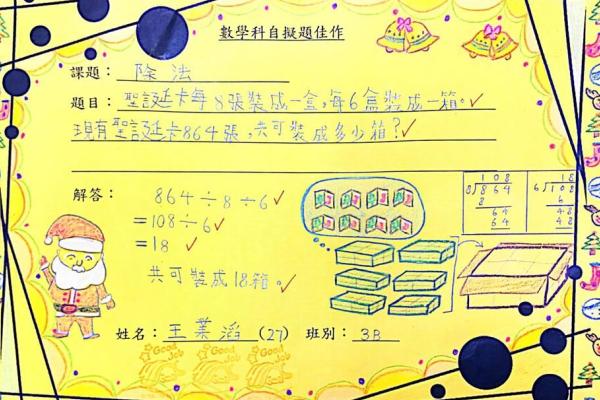 數學科自擬題佳作
課題： 除法
題目： 聖誕卡每8張裝成一盒，每6盒裝成一箱。
現有聖誕卡864張，共可裝成多少箱？
解答：
864÷8÷6
=108÷6
=18
共可裝成18箱。
108
8)864
8
64
64
18
6)108
6
48
48
姓名： 王業滔 (27) 班別： 3B
Good Job Good Job Good Job